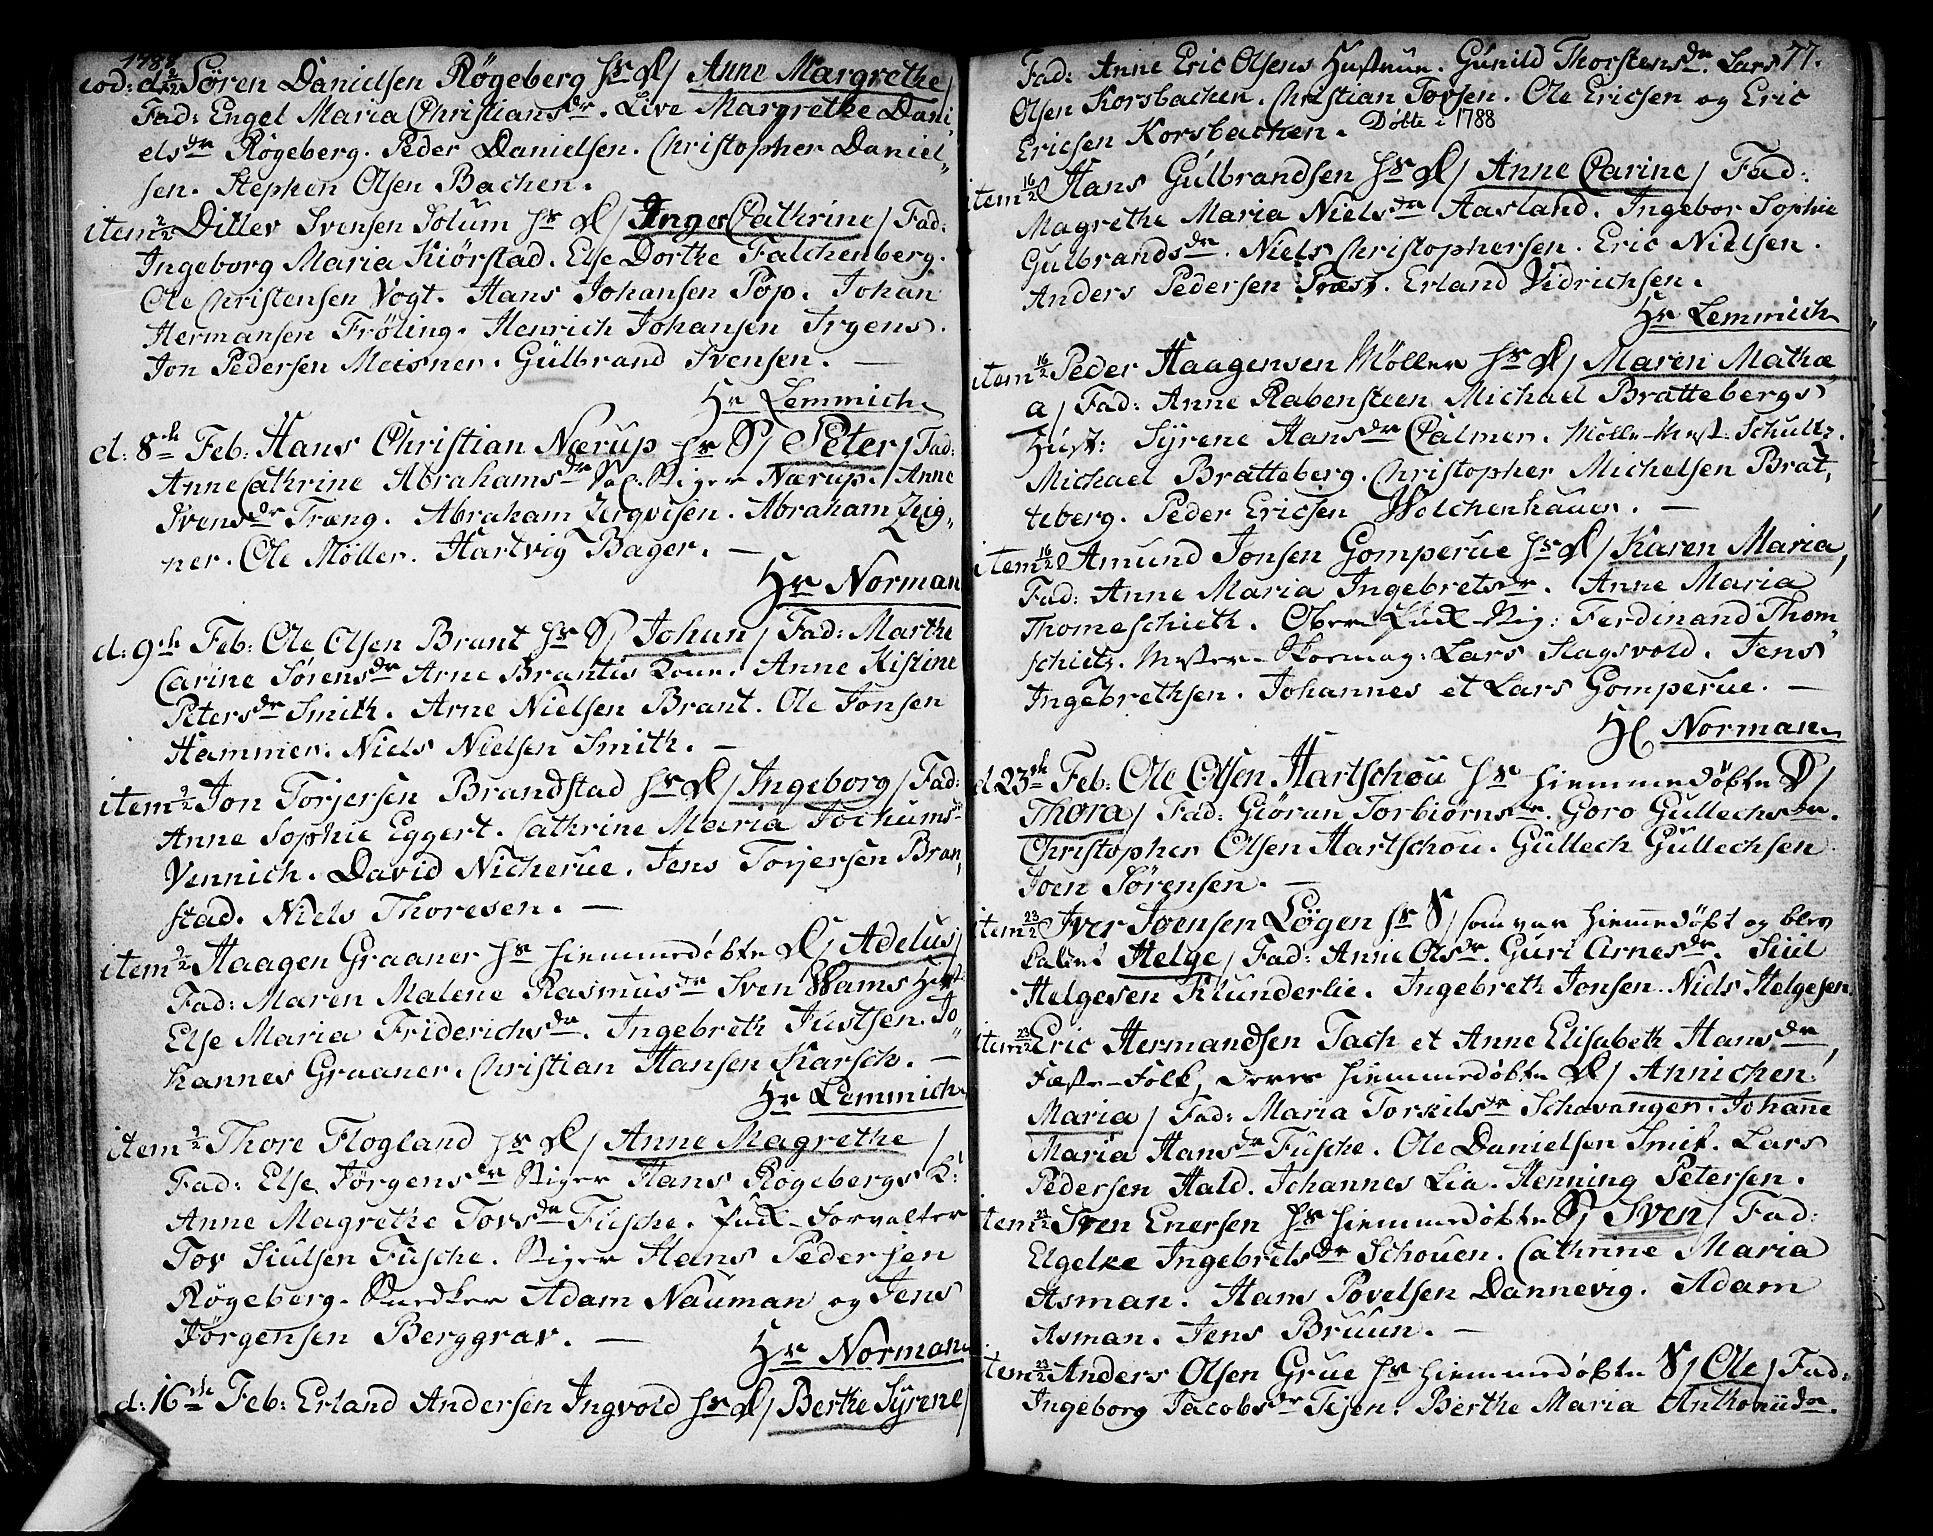 1788
eod: d 2/2 Søren Danielsen Røgeberg Hs D/ Anne Margrethe/
Fad: Engel Maria Christiansdr. Live Margrethe Dani
elsdr Røgeberg. Peder Danielsen. Christopher Daniel-
sen. Stephen Olsen Bachen.
item 2/2 Ditlev Svensen Solum Hs D/ Inger Cathrine/ Fad:
Ingeborg Maria Kiørstad. Else Dorthe Falchenberg.
Ole Christensen Vogt. Hans Johansen Pop. Johan
Hermansen Frøling. Henrich Johansen Irgens.
Jon Pedersen Meisner. Gulbrand Svensen. —
Hr Lemmich
d: 8de Feb: Hans Christian Nærup Hs S/ Peter/ Fad:
Anne Cathrine Abrahamsdr Sal. Stiger Nærup. Anne
Svensdr Træng. Abraham Zergvisen. Abraham Zeig-
ner. Ole Møller. Hartvig Bager. —
Hr Norman
d: 9de Feb: Ole Olsen Brant Hs S/ Johan/ Fad: Marthe
Carine Sørensdr Arne Brantis Kone. Anne Kistine
Petersdr Smith. Arne Nielsen Brant. Ole Jonsen
Hammer. Niels Nielsen Smith. —
item 9/2 Jon Torjersen Brandstad Hs D/ Ingeborg/ Fad:
Anne Sophie Eggert. Cathrine Maria Jochumsdr
Vennich. David Nicherue. Jens Torjersen Bran-
stad. Niels Thoresen. —
item 9/2 Haagen Graaner Hs hiemmedøbte D/ Adelus/
Fad: Maren Malene Rasmusdr Sven Wams Hust.
Else Maria Friderichsdr. Ingebreth Justsen. Jo-
hannes Graaner. Christian Hansen Karsch. —
Hr Lemmich
item 9/2 Thore Flogland Hs D/ Anne Magrethe/
Fad: Else Jørgensdr Stiger Hans Røgebergs K:
Anne Magrethe Torsdr Fusche. Puck-Forvalter
Tov Siulsen Fusche. Stiger Hans Pedersen
Røgeberg. Snedker Adam Nauman og Jens
Jørgensen Berggrav. —
Hr Norman
d: 16de Feb: Erland Andersen Ingvold Hs D/ Berthe Syrene/
77.
Fad: Anne Eric Olsens Hustrue. Gunild Thorstensdr. Lars
Olsen Korsbachen. Christian Torsen. Ole Ericsen og Eric
Ericsen Korsbachen. Døbte i 1788
item 16/2 Hans Gulbrandsen Hs D/ Anne Carine/ Fad:
Magrethe Maria Nielsdr Aasland. Ingebor Sophie
Gulbrandsdr. Niels Christophersen. Eric Nielsen.
Anders Pedersen Præst. Erland Vidrichsen.
Hr Lemmich
item 16/2 Peder Haagensen Møller Hs D/ Maren Mathæ
a/ Fad: Anne Rabensteen Michael Brattebergs
Hust: Syrene Hansdr Palmer. Mølle-Mest. Schultz.
Michael Bratteberg. Christopher Michelsen Brat-
teberg. Peder Ericsen Wolchenhauer. —
item 16/2 Amund Jonsen Gomperue Hs D/ Karen Maria/
Fad: Anne Maria Ingebretsdr. Anne Maria
Thomeschieth. Ober-Puck-Stig: Ferdinand Thom
schietz. Mester- Lars Slagsvold. Jens
Ingebrethsen. Johannes et Lars Gomperue. —
Hr Norman
d 23de Feb: Ole Olsen Hartschou Hs hiemmedøbte D/
Thora/ Fad: Giøran Torbiørnsdr. Goro Gullechsdr.
Christopher Olsen Hartschou. Gullech Gullechsen
Joen Sørensen. —
item 23/2 Iver Joensen Løgen Hs S/ som var hiemmedøbt og blev
kaldet Helge/ Fad: Anne Olsdr. Guri Arnesdr. Siul
Helgesen Klunderlie. Ingebreth Jonsen. Niels Helgesen
item 23/2 Eric Hermandsen Tach et Anne Elisabeth Hansdr,
Fæste-Folk, deres hiemmedøbte D/ Annichen
Maria/ Fad: Maria Torkilsdr Schavanger. Johanne
Maria Hansdr Fusche. Ole Danielsen Smit. Lars
Pedersen Hald. Johannes Lia. Henning Petersen.
item 23/2 Sven Enersen Hs hiemmedøbte S/ Sven/ Fad:
Elgelke Ingebretsdr Schouen. Cathrine Maria
Asman. Hans Povelsen Dannevig. Adam
Asman. Jens Bruun. —
item 23/2 Anders Olsen Grue Hs hiemmedøbte S/ Ole/ Fad:
Ingeborg Jacobsdr Tejen. Berthe Maria Anthoniidr.